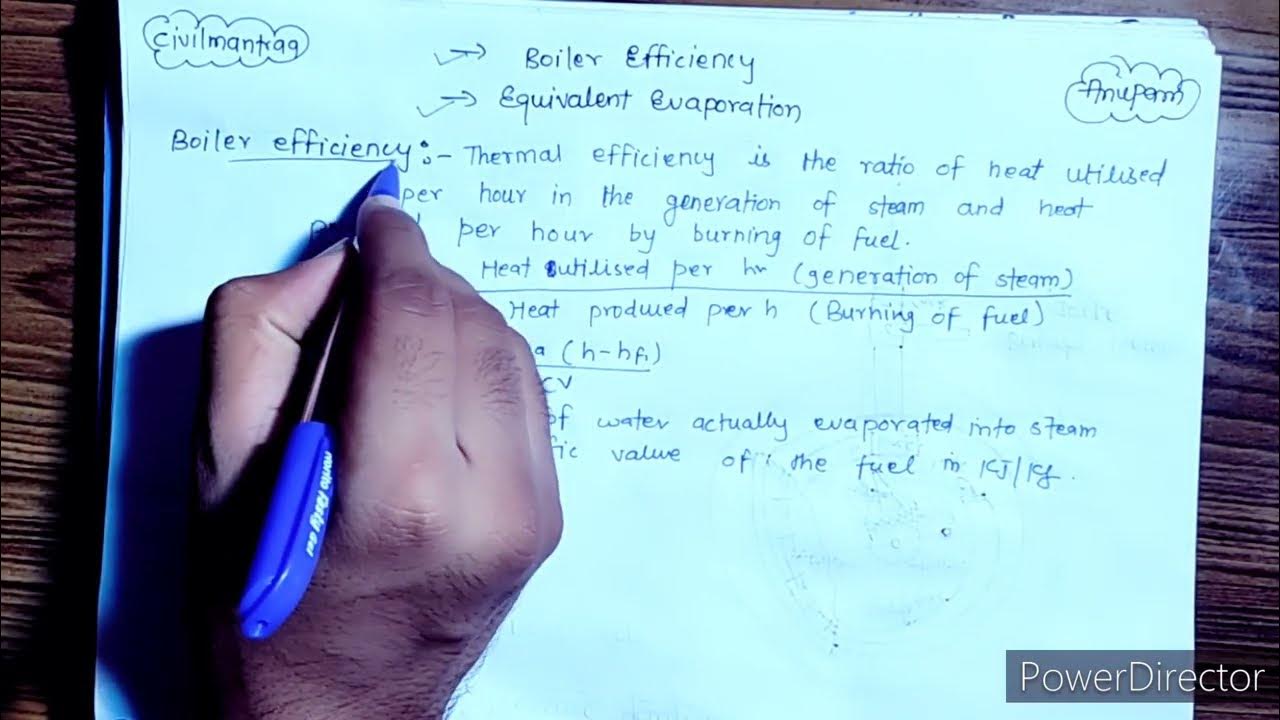 Civilmantraa
→ Boiler Efficiency
→ Equivalent Evaporation
Anupam
Boiler efficiency :- Thermal efficiency is the ratio of heat utilised
per hour in the generation of steam and heat
per hour by burning of fuel.
Heat utilised per hr (generation of steam)
Heat produced per h (Burning of fuel)
a (h-hf1)
CV
of water actually evaporated into steam
fic value of the fuel in KJ/Kg.
Gel
PowerDirector